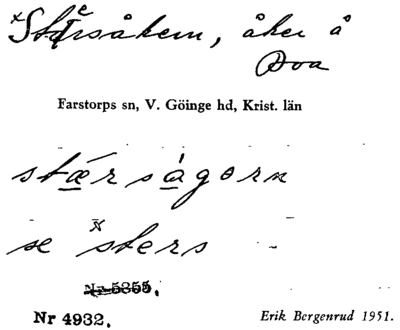 ×Stersåkern, åker å
Boa
Farstorps sn, V. Göinge hd, Krist. län
stærságorn
se ×sters
Nr 5355.
Nr 4932.
Erik Bergenrud 1951.